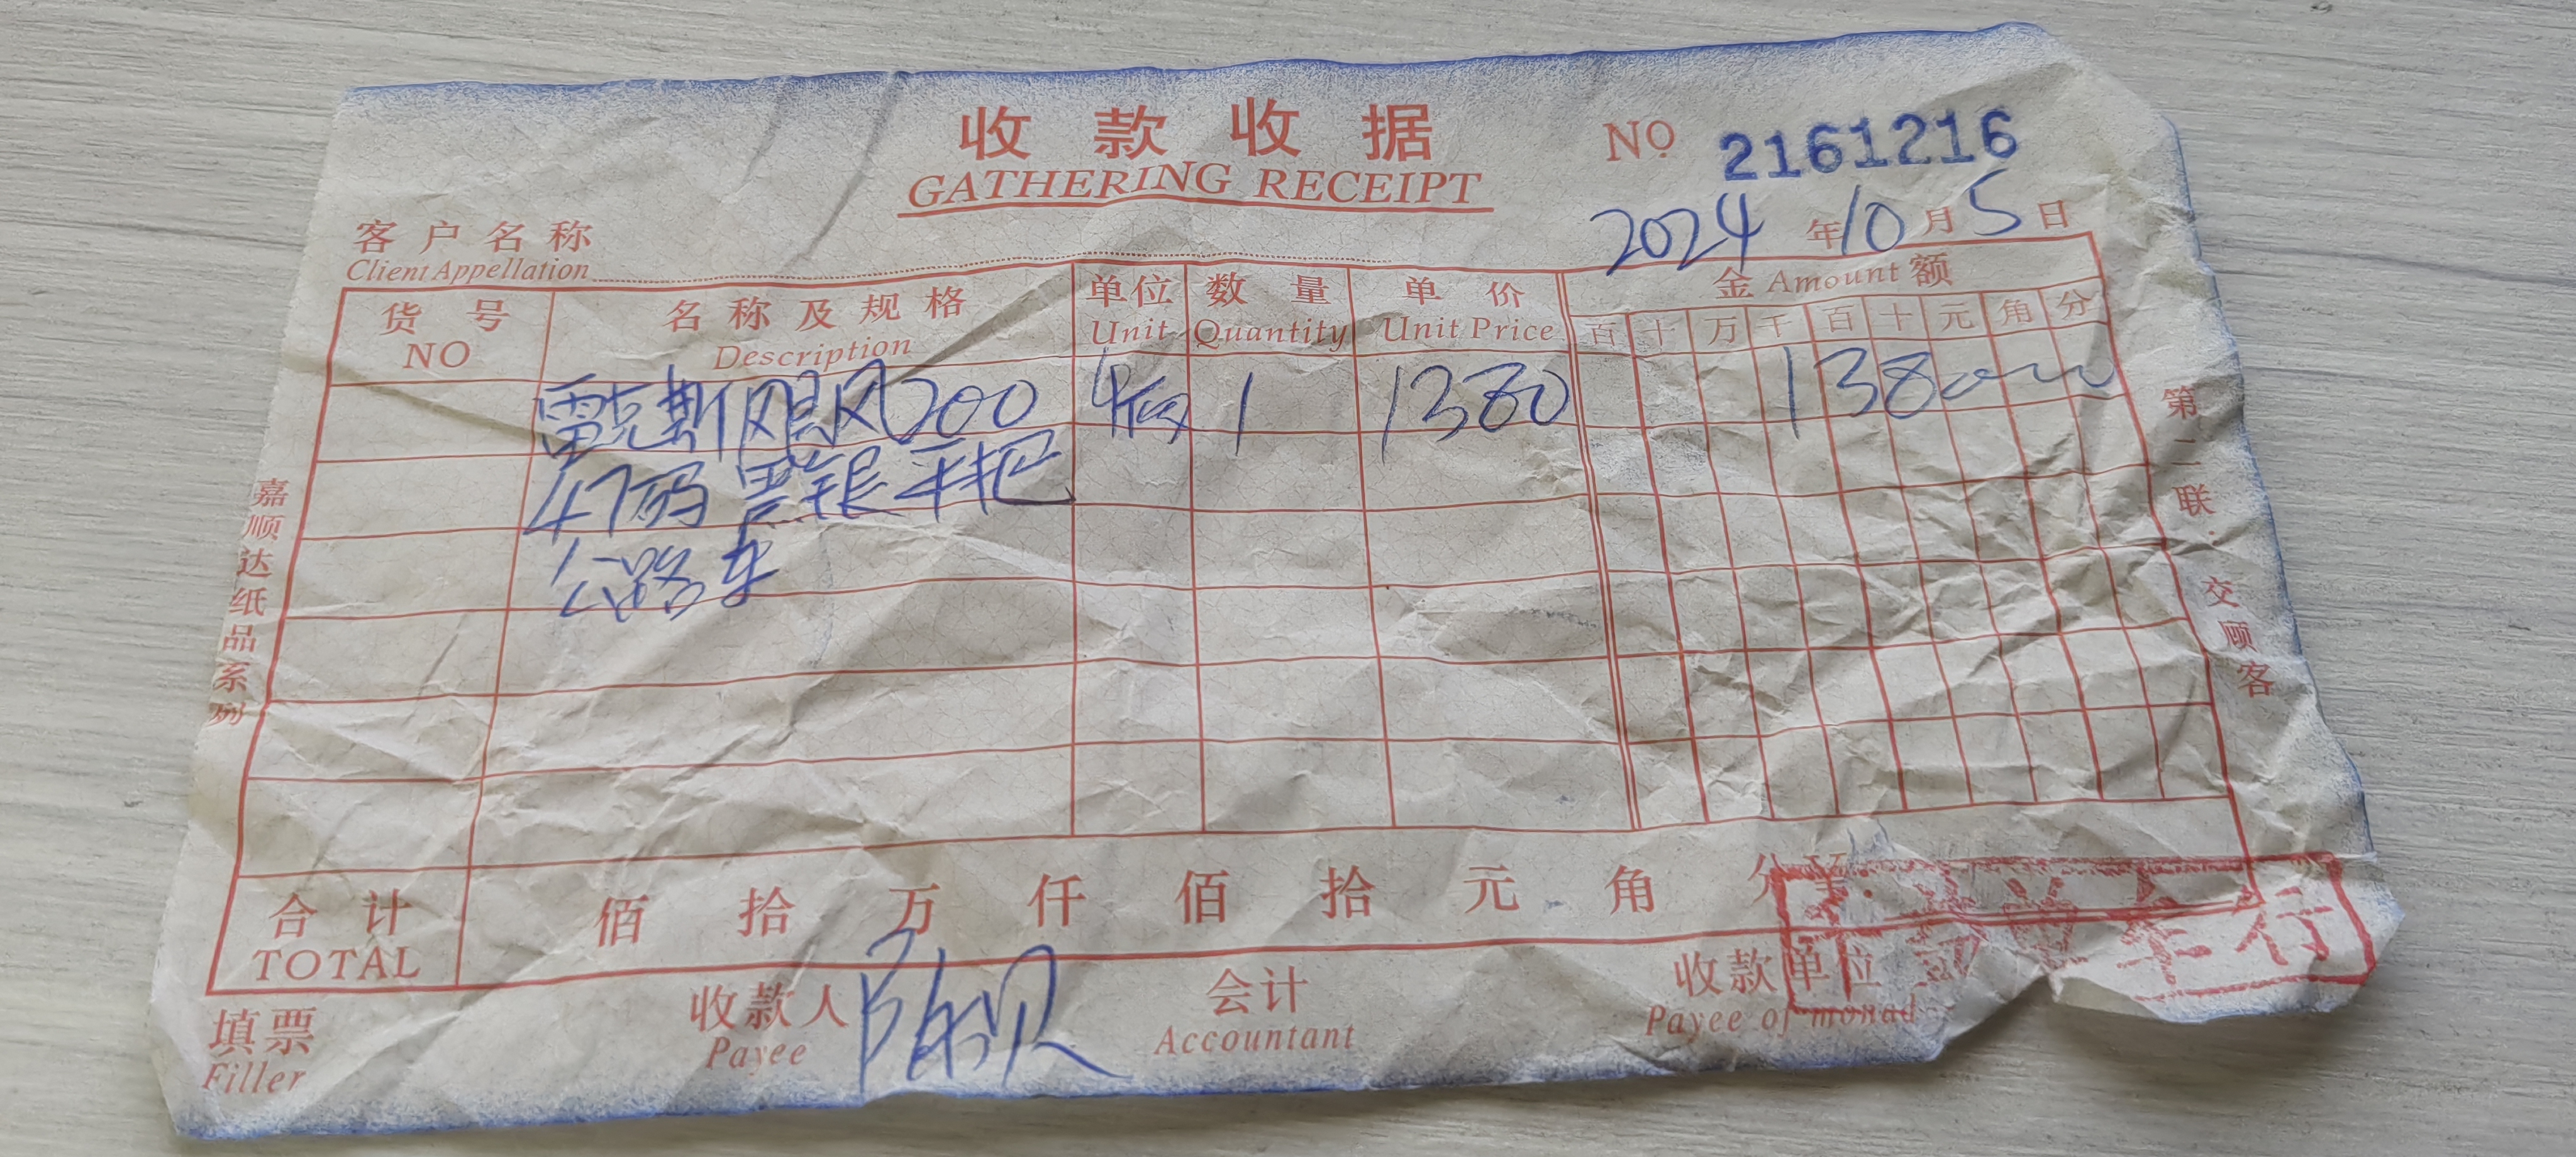 收款收据
GATHERING RECEIPT
NO 2161216
2024年10月5日
客户名称
Client Appellation
货号 名称及规格 单位 数量 单价 金 Amount 额
NO Description Unit Quantity Unit Price 百 十 万 千 百 十 元 角 分
雷克斯 风200 1 1380 1380
47码 黑银 平把
公路车
合计 佰 拾 万 仟 佰 拾 元 角 分 ¥:
TOTAL
填票 收款人 会计 收款单位
Filler Payee Accountant Payee of monad
车行
嘉顺达纸品系列
第二联:交顾客